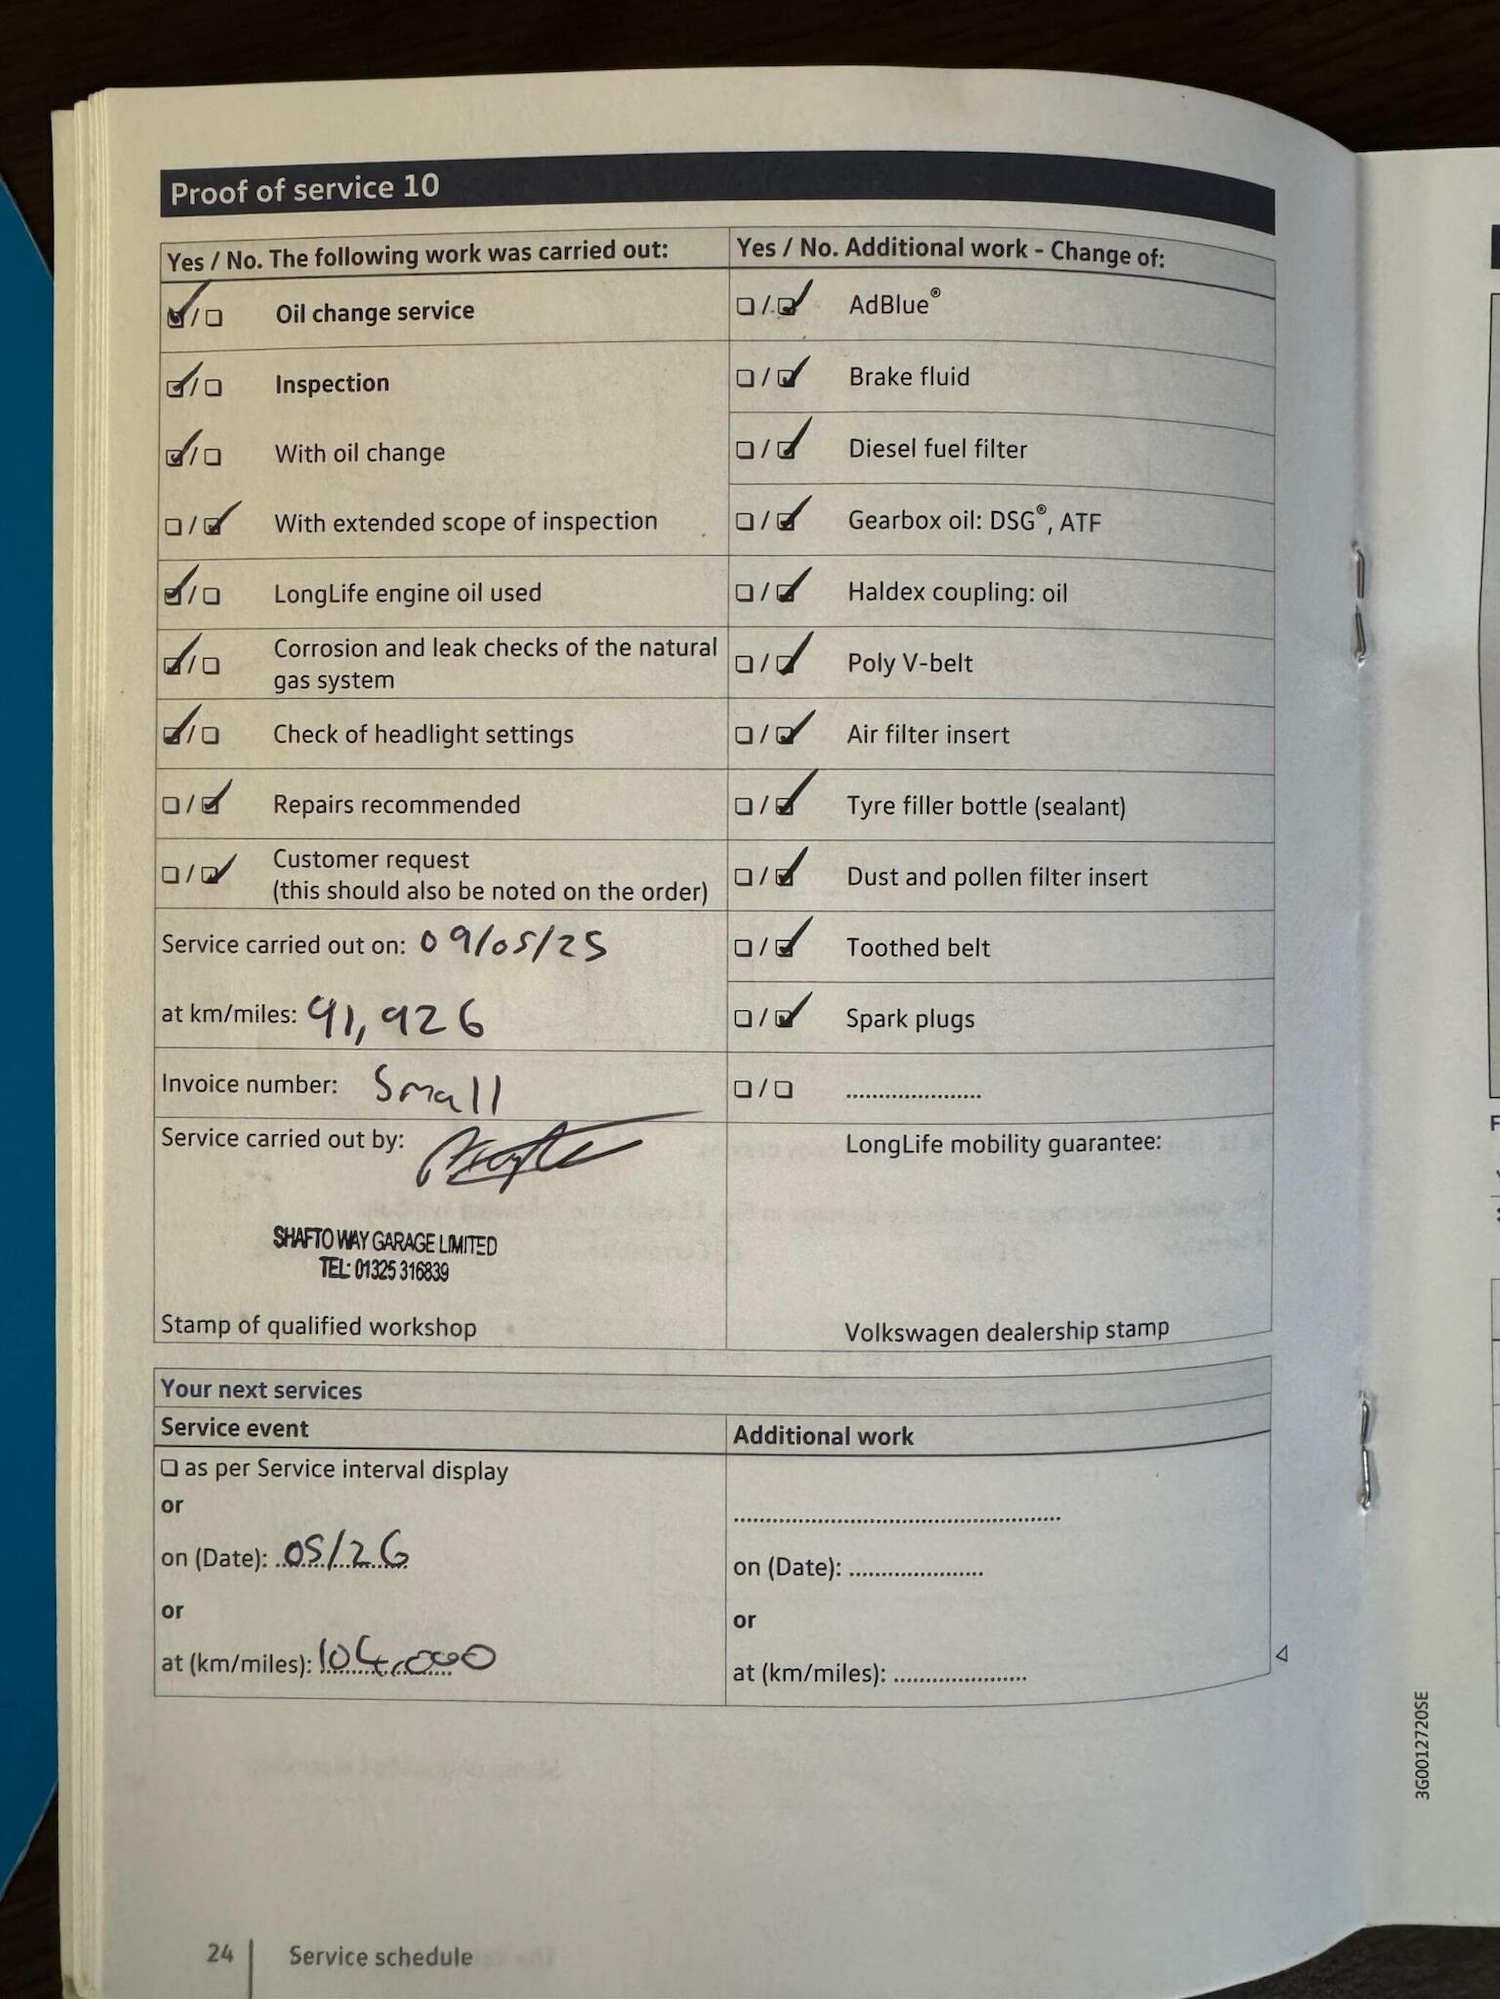 Proof of service 10
Yes / No. The following work was carried out:
☑/☐ Oil change service
☑/☐ Inspection
☑/☐ With oil change
☐/☑ With extended scope of inspection
☑/☐ LongLife engine oil used
☑/☐ Corrosion and leak checks of the natural
gas system
☑/☐ Check of headlight settings
☐/☑ Repairs recommended
☐/☑ Customer request
(this should also be noted on the order)
Service carried out on: 09/05/25
at km/miles: 91,926
Invoice number: Small
Service carried out by:
SHAFTO WAY GARAGE LIMITED
TEL: 01325 316839
Stamp of qualified workshop
Yes / No. Additional work - Change of:
☐/☑ AdBlue®
☐/☑ Brake fluid
☐/☑ Diesel fuel filter
☐/☑ Gearbox oil: DSG®, ATF
☐/☑ Haldex coupling: oil
☐/☑ Poly V-belt
☐/☑ Air filter insert
☐/☑ Tyre filler bottle (sealant)
☐/☑ Dust and pollen filter insert
☐/☑ Toothed belt
☐/☑ Spark plugs
☐/☐ .....................
LongLife mobility guarantee:
Volkswagen dealership stamp
Your next services
Service event
☐ as per Service interval display
or
on (Date): 05/26
or
at (km/miles): 104,000
Additional work
on (Date): .....................
or
at (km/miles): .....................
24 Service schedule
3G0012720SE